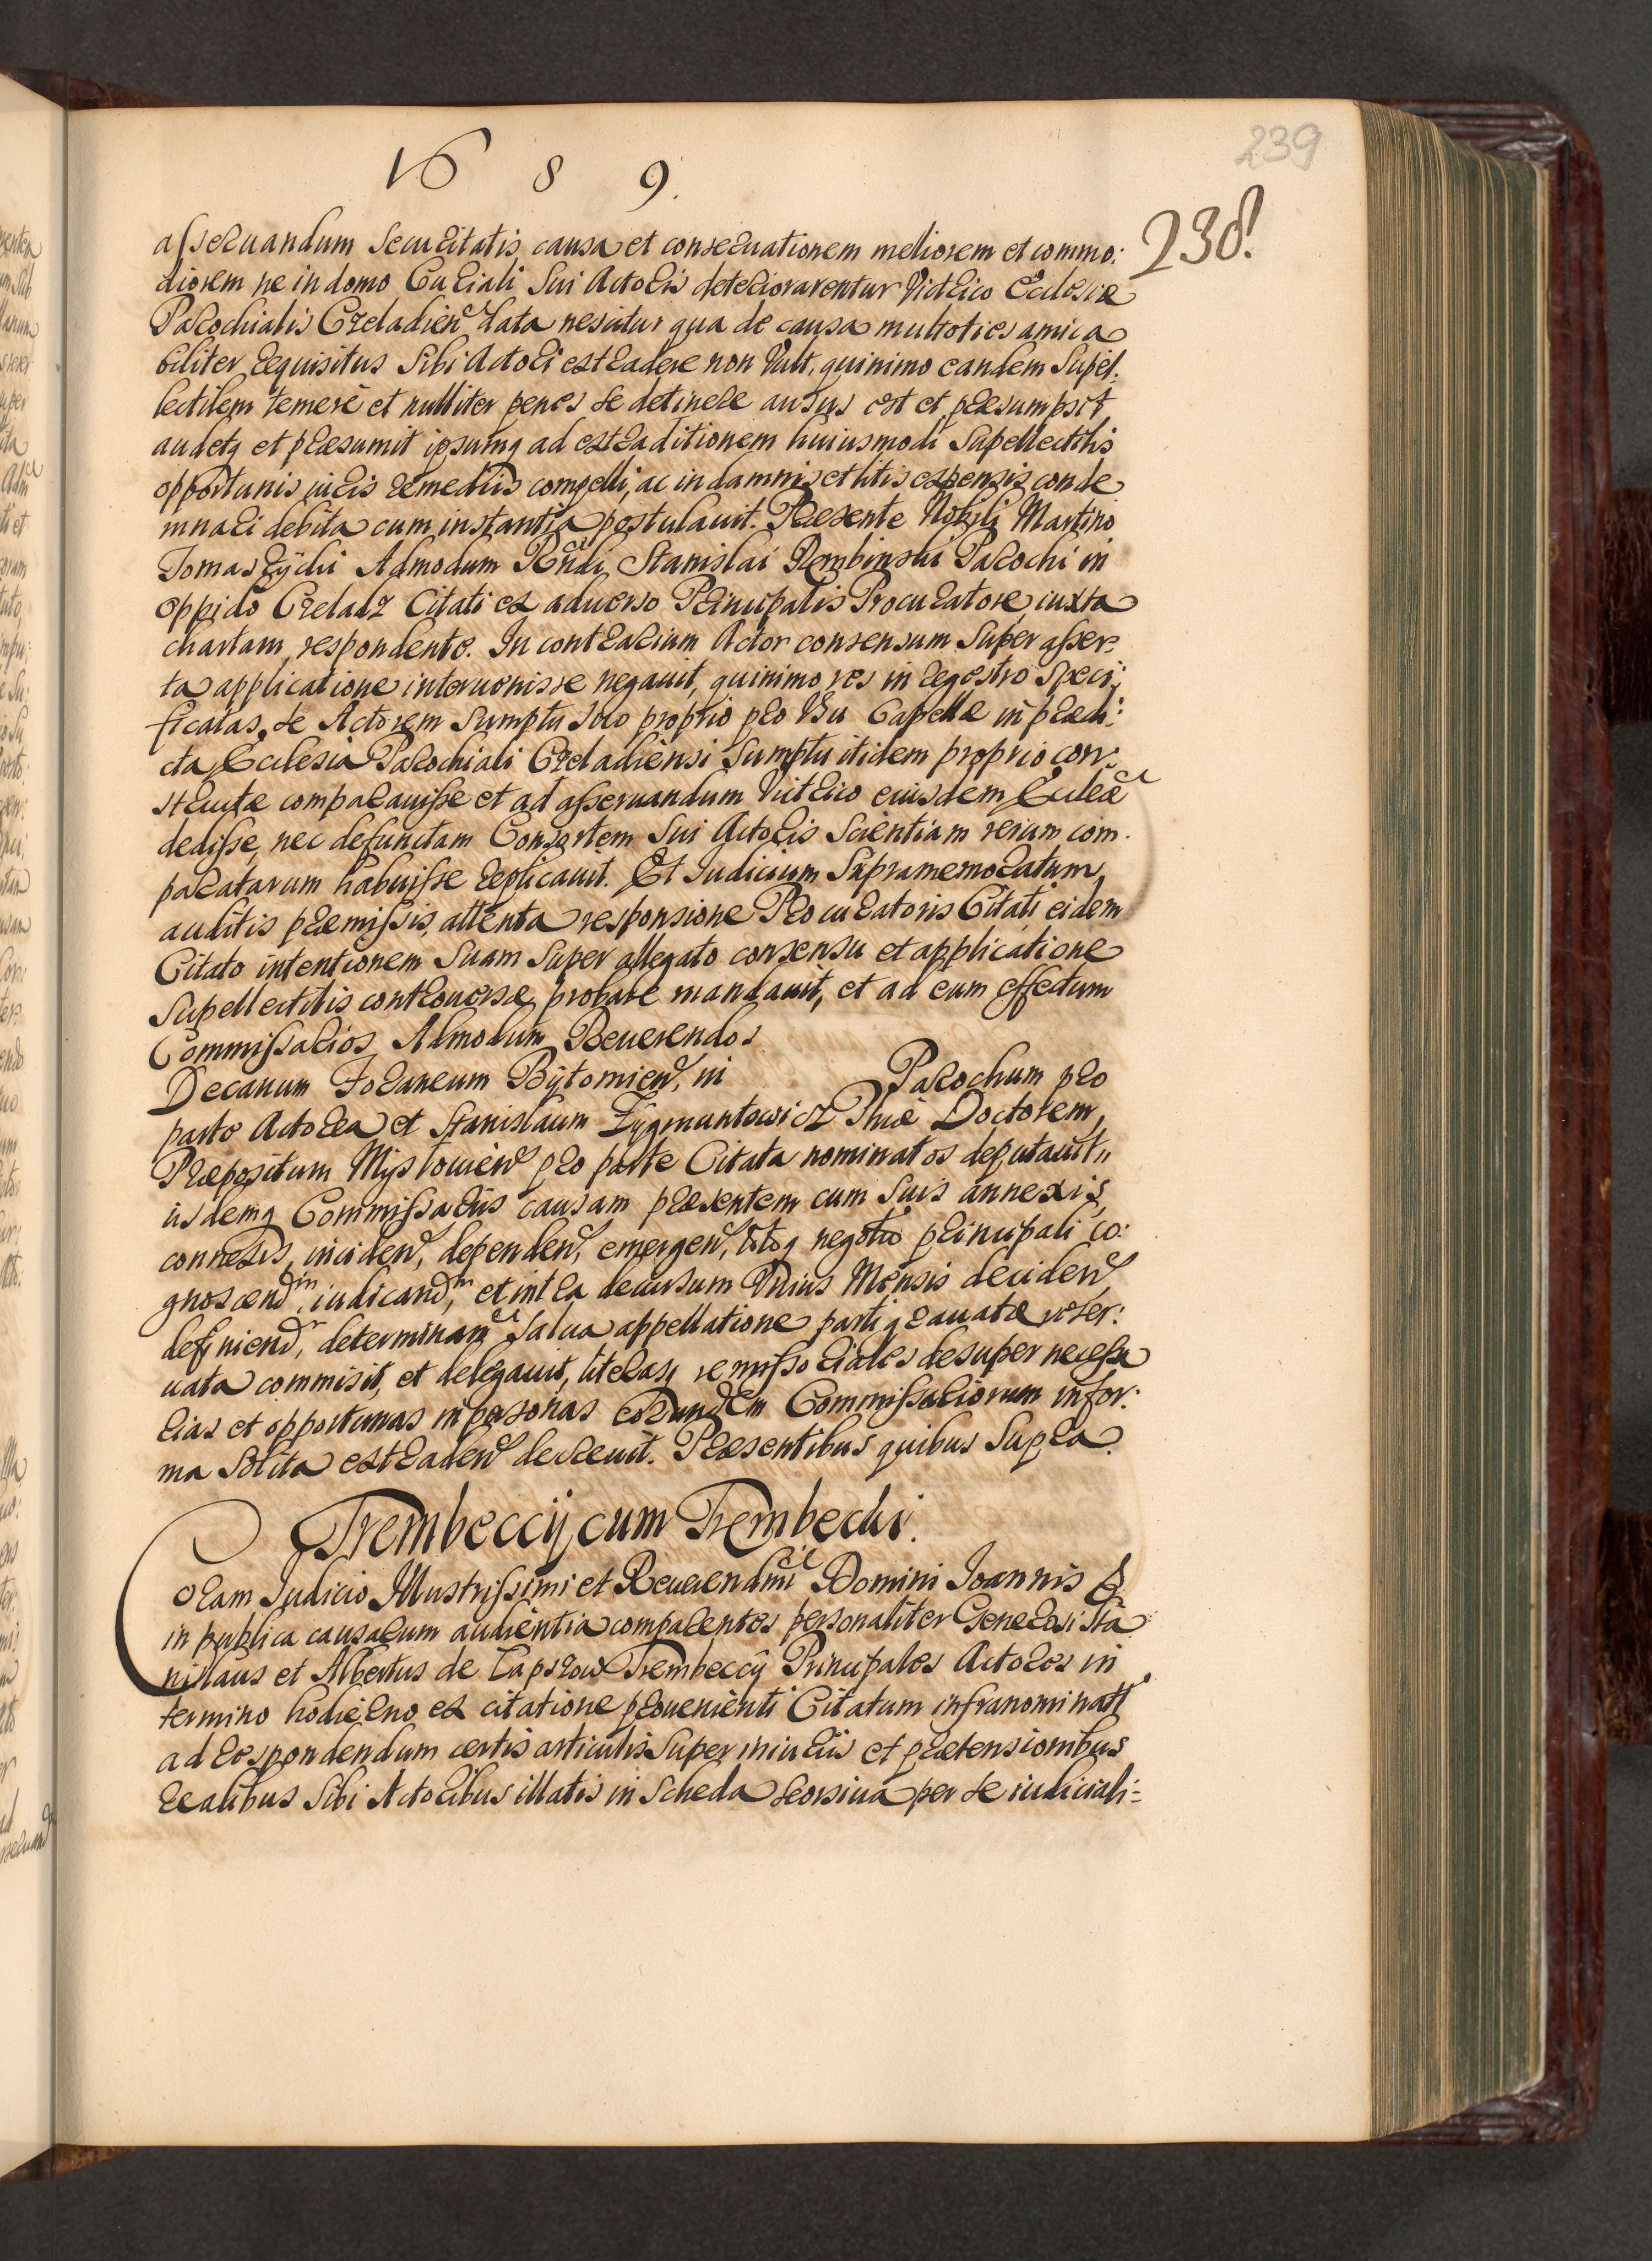 1689.
239
238.
asseruandum securitatis causa et conseruationem meliorem et commo:
diorem ne in domo Curiali sui Actoris deteriorarentur Victrico Ecclesiæ
Parochialis Czeladien data nescitur qua de causa multoties amica
biliter requisitus sibi Actori extradere non vult, quinimo eandem supel:
lectilem temerè et nulliter penes se detinere ausus est et præsumpsit,
audetq et præsumit ipsumq ad extraditionem huiusmodi supellectilis
opportunis iuris remediis compelli, ac in damnis et litis expensis conde
mnari debita cum instantia postulauit. Præsente Nobili Martino
Tomaszycki Admodum Rndi Stanislai Dembinski Parochi in
oppido Czeladz Citati ex aduerso Principalis Procuratore iuxta
chartam respondente. In contrarium Actor consensum super asser:
ta applicatione interuenisse negauit, quinimo res in regestro speci:
ficatas, se Actorem sumptu suo proprio pro vsu Capellæ in prædi:
cta Ecclesia Parochiali Czeladiensi sumptu itidem proprio con:
structæ comparauisse et ad asseruandum Victrico eiusdem Ecclæ
dedisse, nec defunctam Consortem sui Actoris scientiam rerum com
paratarum habuisse replicauit. Et Iudicium supramemoratum,
auditis præmissis, attenta responsione Procuratoris Citati, eidem
Citato intentionem suam super allegato consensu et applicatione
supellectilis controuersæ probare mandauit, et ad eum effectum
Commissarios Admodum Reuerendos
Decanum Foraneum Bytomien, in Parochum pro
parte Actorea et Stanislaum Zygmuntowicz Phiæ Doctorem,
Præpositum Myslouien pro parte Citata nominatos deputauit,,
iisdemq Commissariis causam præsentem cum suis annexis,
connexis, inciden, dependen, emergen, totoq negotio principali co:
gnoscendm, iudicandm, et intra decursum Vnius Mensis deciden
definiend, determinan salua appellatione parti grauatæ reser:
uata commisit, et delegauit, literasq remissoriales desuper necessa
rias et opportunas in personas eorundem Commissariorum in for:
ma solita extraden decreuit. Præsentibus quibus supra.
Trembeccij cum Trembecki.
Coram Iudicio Illustrissimi et Reuerendmi Domini Ioannis &
in publica causarum audientia comparentes personaliter Generosi Sta
nislaus et Albertus de Łapszow Trembeccy Principales Actores in
termino hodierno ex citatione prouenienti Citatum infranominatu
ad respondendum certis articulis super iniuriis et prætensionibus
realibus sibi Actoribus illatis in scheda seorsiua per se iudiciali: